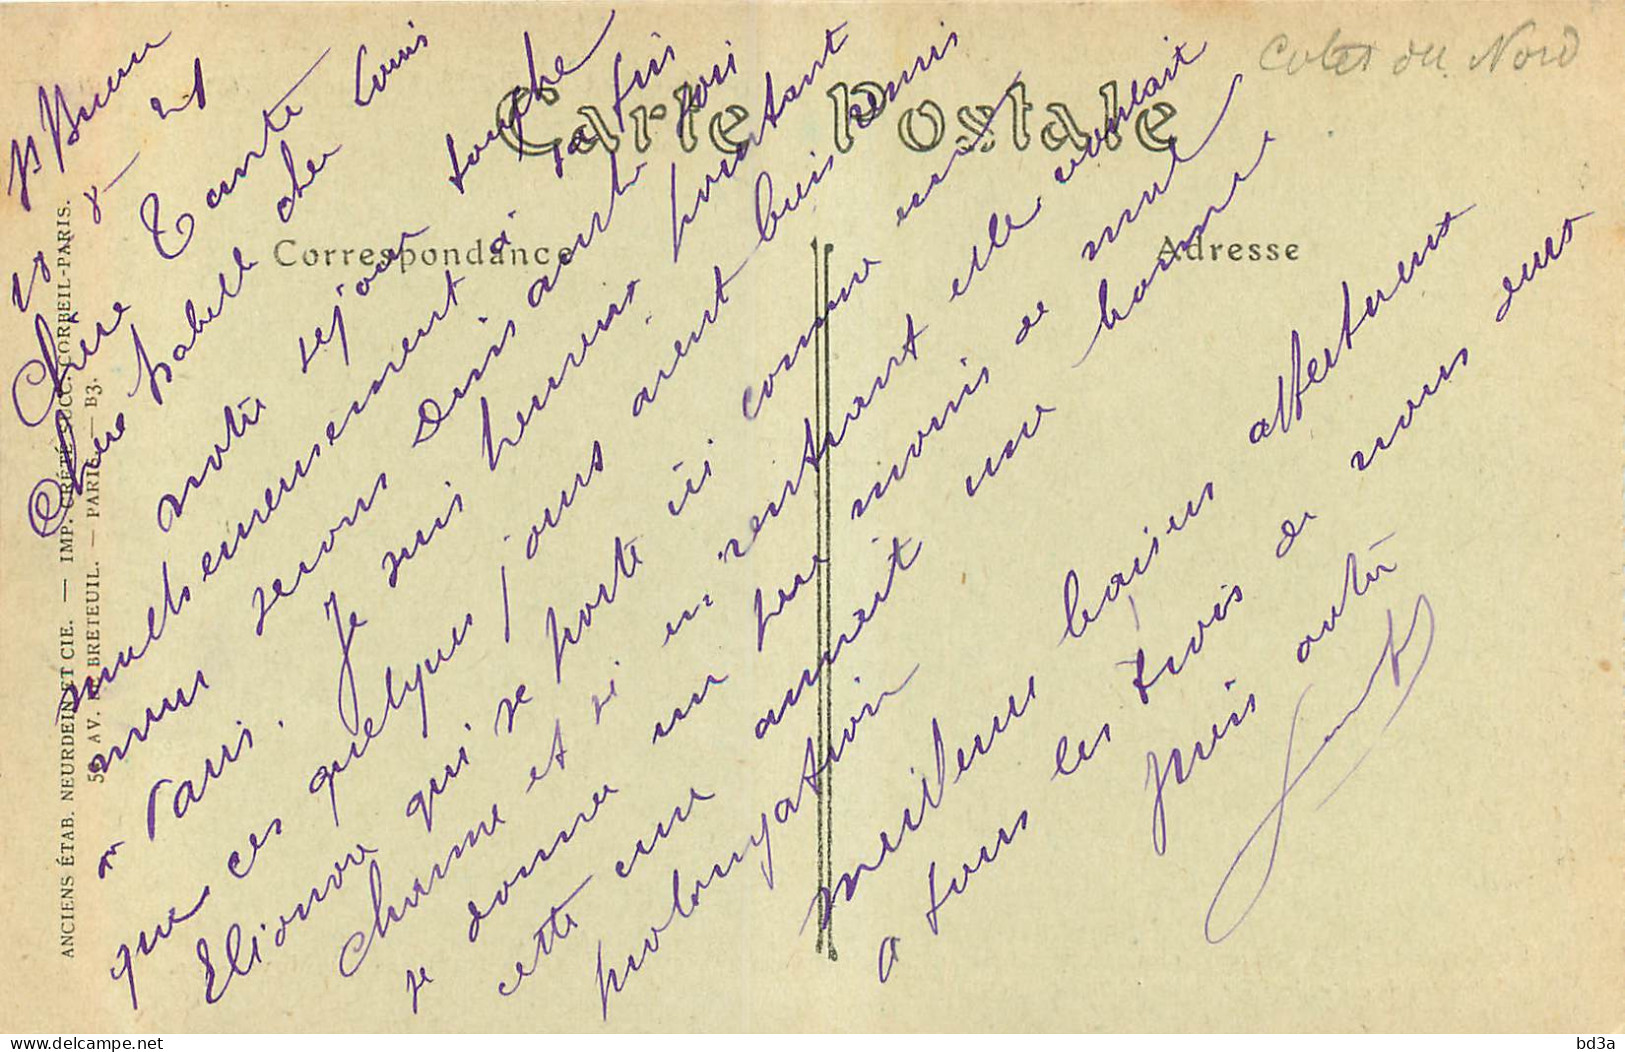 Cotes du Nord
Carte Postale
Correspondance
Adresse
ANCIENS ÉTAB. NEURDEIN ET CIE. — IMP. CRÉTÉ SUCC. CORBEIL-PARIS.
52 AV. DE BRETEUIL. — PARIS — B3.
St Brieuc
18 - 8 - 21
Chère Tante Louis
Chère Isabelle cher
notre sejour touche
malheureusement à sa fin
nous serons Dimanche soir
a Paris. Je suis heureux pourtant
que ces quelques jours aient bien remis
Eléonore qui se porte ici comme un
charme et si en rentrant elle voulait
se donner un peu moins de mal
cette cure aurait une bonne
prolongation
meilleurs baisers affectueux
a tous les trois de nous deux
puis votre
bd3a